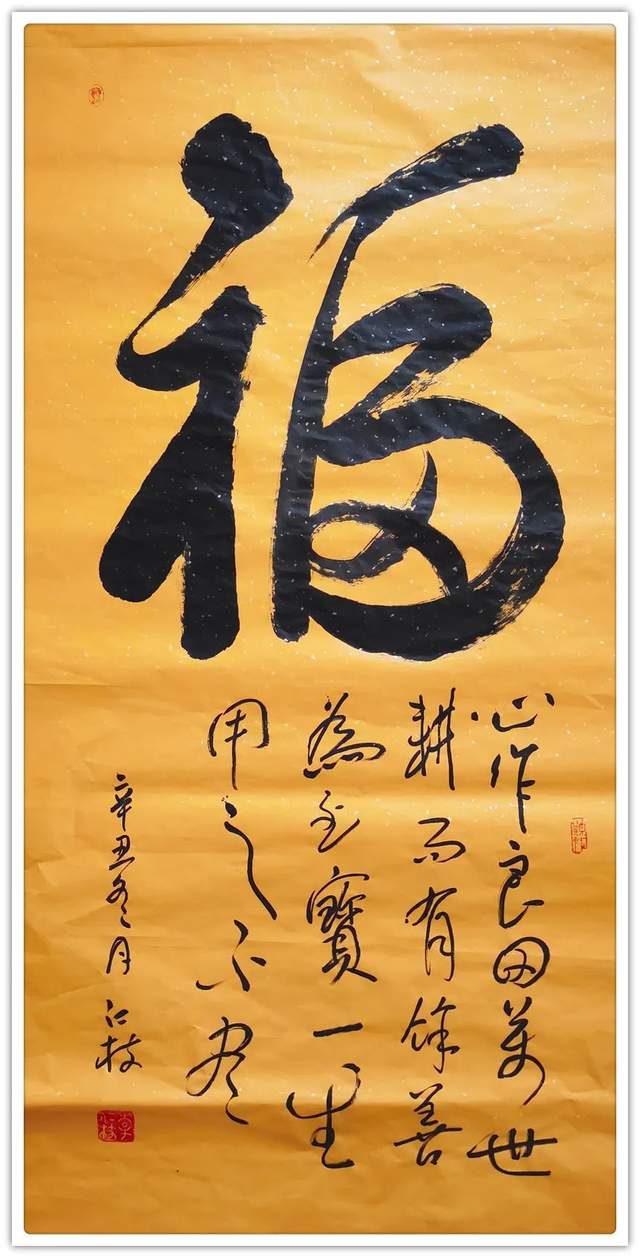 福
心作良田萬世
耕而有餘善
為至寶一生
用之不盡
辛丑冬月 仁枝